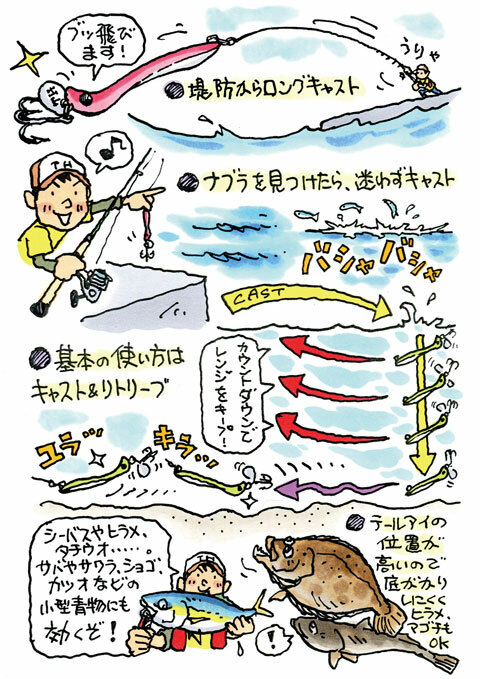 ブッ飛び
ます!
うりゃ
●堤防からロングキャスト
TH
●ナブラを見つけたら、迷わずキャスト
バシャバシャ
CAST
●基本の使い方は
キャスト&リトリーブ
カウントダウンで
レンジをキープ!
ユラッ
キラッ
シーバスやヒラメ、
タチウオ……。
サバやサワラ、ショゴ、
カツオなどの
小型青物にも
効くぞ!
!
●テールアイの
位置が
高いので
底がかり
しにくく
ヒラメ、
マゴチも
OK